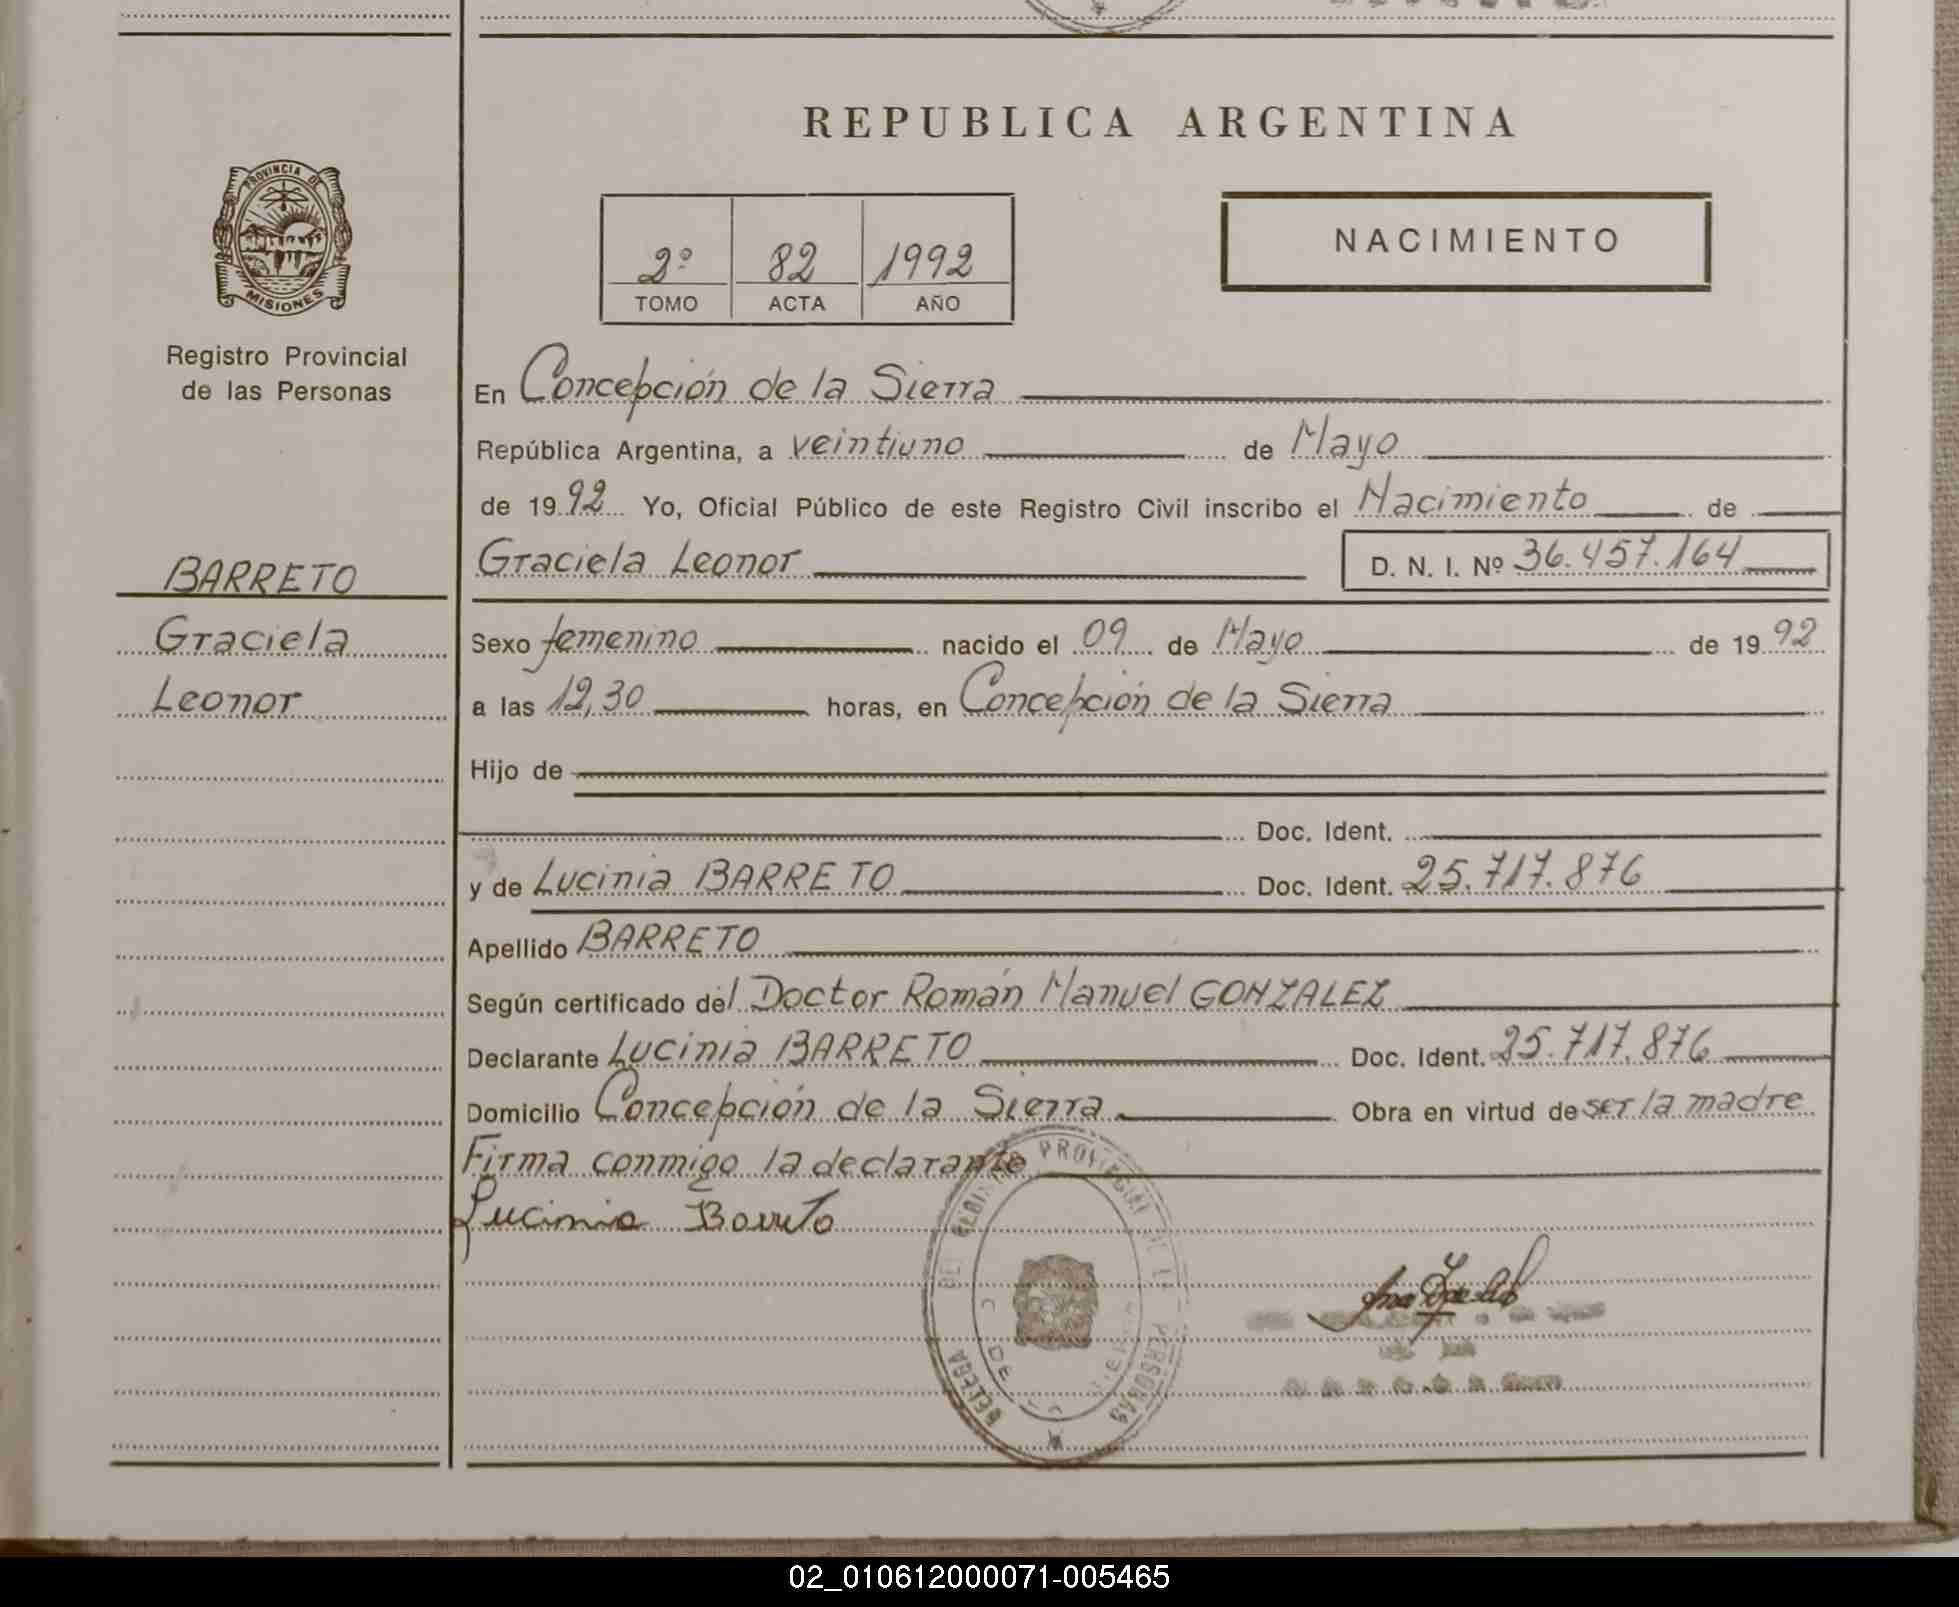 REPUBLICA ARGENTINA
PROVINCIA DE
MISIONES
Registro Provincial
de las Personas
2º 82 1992
TOMO ACTA AÑO
NACIMIENTO
BARRETO
Graciela
Leonor
En Concepción de la Sierra
República Argentina, a veintiuno de Mayo
de 1992 Yo, Oficial Público de este Registro Civil inscribo el Nacimiento de
Graciela Leonor D. N. I. Nº 36.457.164
Sexo femenino nacido el 09 de Mayo de 1992
a las 12,30 horas, en Concepción de la Sierra
Hijo de
Doc. Ident.
y de Lucinia BARRETO Doc. Ident. 25.717.876
Apellido BARRETO
Según certificado del Doctor Román Manuel GONZALEZ
Declarante Lucinia BARRETO Doc. Ident. 25.717.876
Domicilio Concepción de la Sierra Obra en virtud de ser la madre
Firma conmigo la declarante
Lucinia Barreto
DEL REGISTRO PROVINCIAL DE PERSONAS
02_010612000071-005465